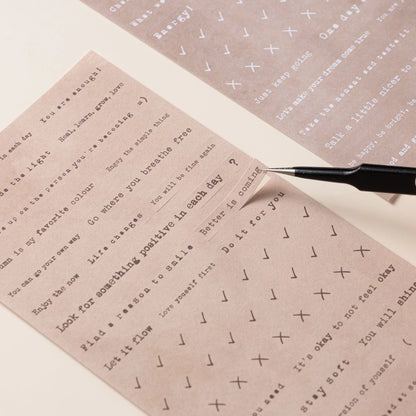 Energy!
One day
Just keep going
Let's make your dream come true
Talk a little nicer
be happy, be bright,
in each day You are enough!
the light Heal, learn, grow, love
up on the person you're becoming =)
is my favorite colour Enjoy the simple thing
You can go your own way Go where you breathe free
Enjoy the now Life changes You will be fine again
Look for something positive in each day ?
Find a reason to smile Better is coming
Let it flow Love yourself first Do it for you
need It's okay to not feel okay
Stay soft You will
of yourself (